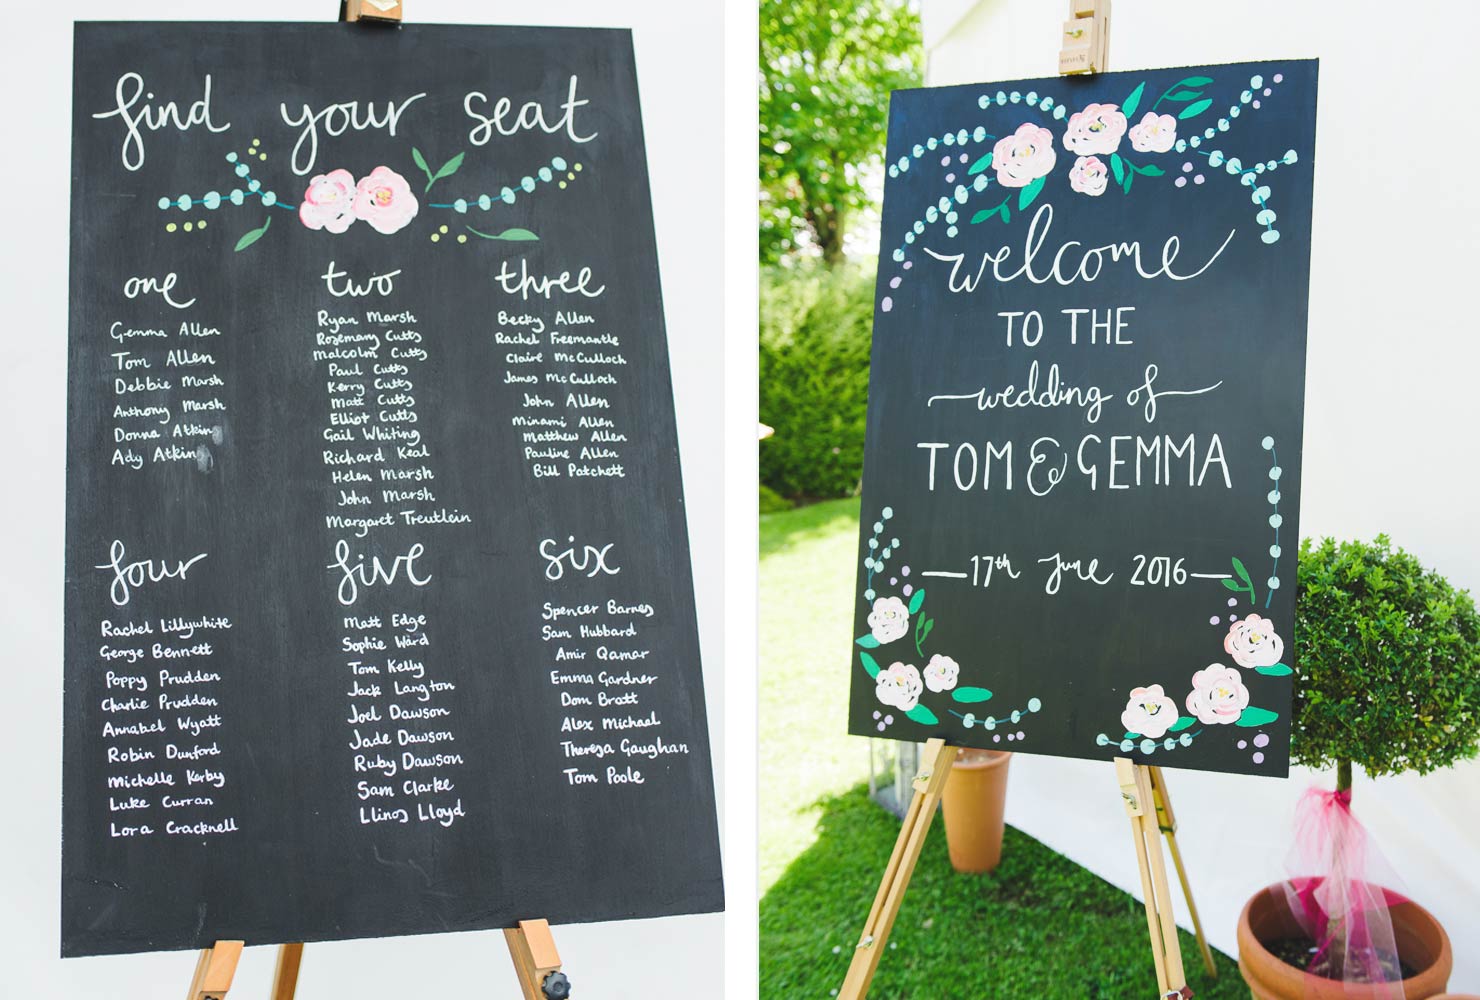 find your seat
one
Gemma Allen
Tom Allen
Debbie Marsh
Anthony Marsh
Donna Atkin
Ady Atkin
two
Ryan Marsh
Rosemary Cutts
Malcolm Cutts
Paul Cutts
Kerry Cutts
Matt Cutts
Elliot Cutts
Gail Whiting
Richard Keal
Helen Marsh
John Marsh
Margaret Treutlein
three
Becky Allen
Rachel Freemantle
Claire McCulloch
James McCulloch
John Allen
Minami Allen
Matthew Allen
Pauline Allen
Bill Patchett
four
Rachel Lillywhite
George Bennett
Poppy Prudden
Charlie Prudden
Annabel Wyatt
Robin Dunford
Michelle Kerby
Luke Curran
Lora Cracknell
five
Matt Edge
Sophie Ward
Tom Kelly
Jack Langton
Joel Dawson
Jade Dawson
Ruby Dawson
Sam Clarke
Llinos Lloyd
six
Spencer Barnes
Sam Hubbard
Amir Qamar
Emma Gardner
Dom Bratt
Alex Michael
Theresa Gaughan
Tom Poole
welcome
TO THE
wedding of
TOM & GEMMA
17th June 2016